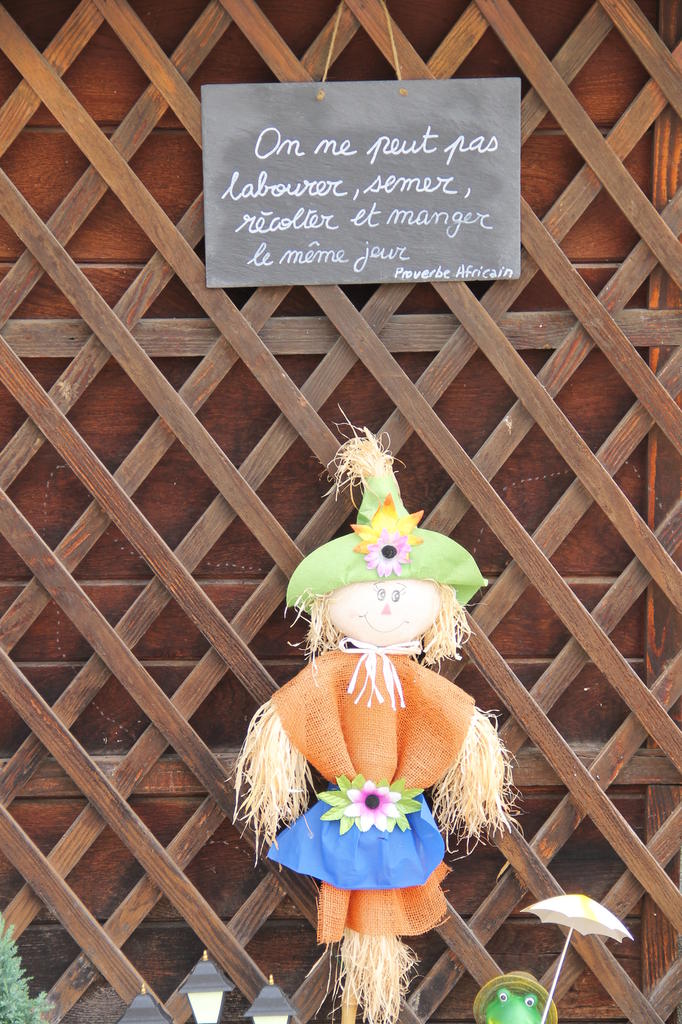 On ne peut pas
labourer, semer,
récolter et manger
le même jour
Proverbe Africain